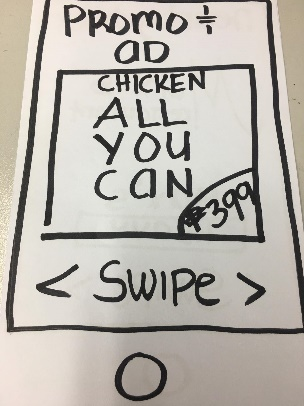 PROMO &
aD
CHICKEN
ALL
YOU
CaN
$399
< SWIPe >